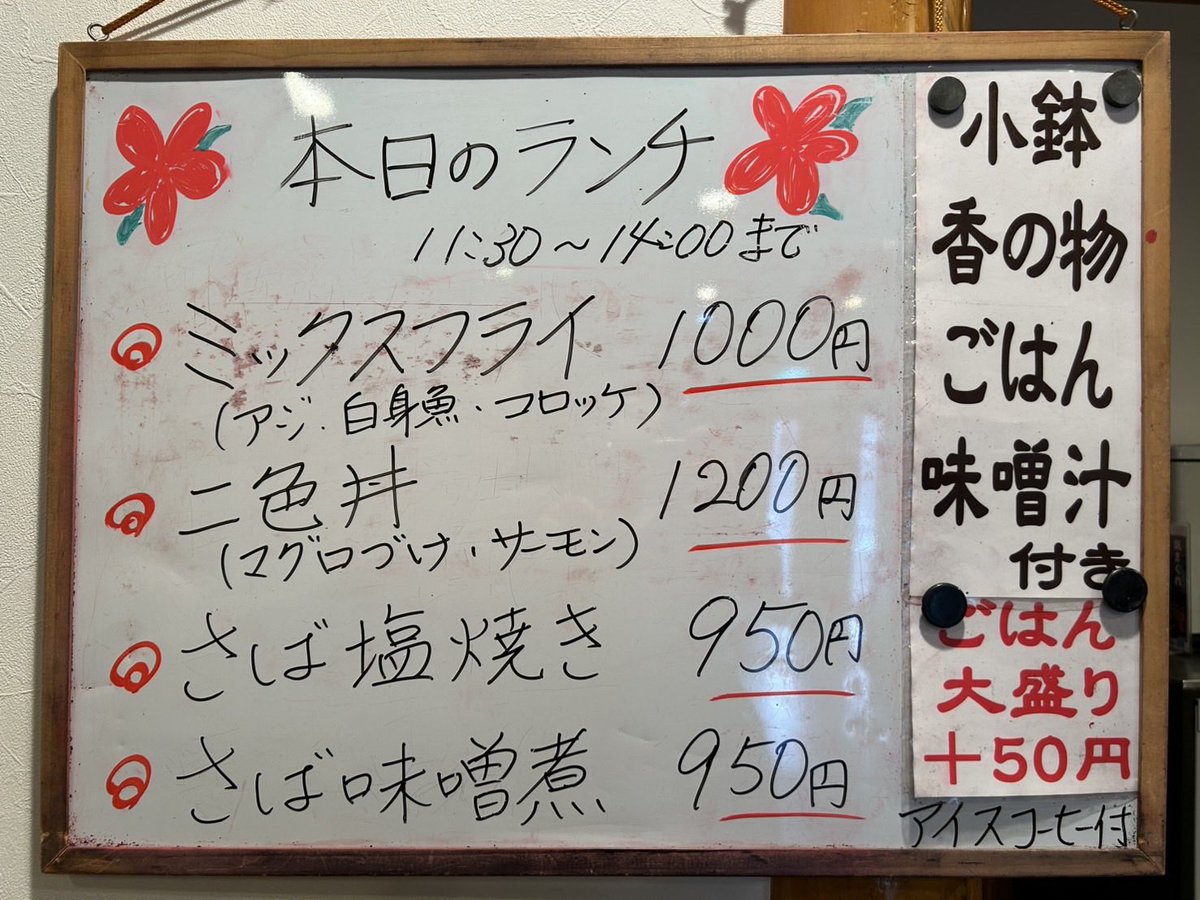 本日のランチ
11:30～14:00まで
ミックスフライ 1000円
(アジ・白身魚・コロッケ)
二色丼 1200円
(マグロづけ・サーモン)
さば塩焼き 950円
さば味噌煮 950円
小鉢
香の物
ごはん
味噌汁
付き
ごはん
大盛り
+50円
アイスコーヒー付